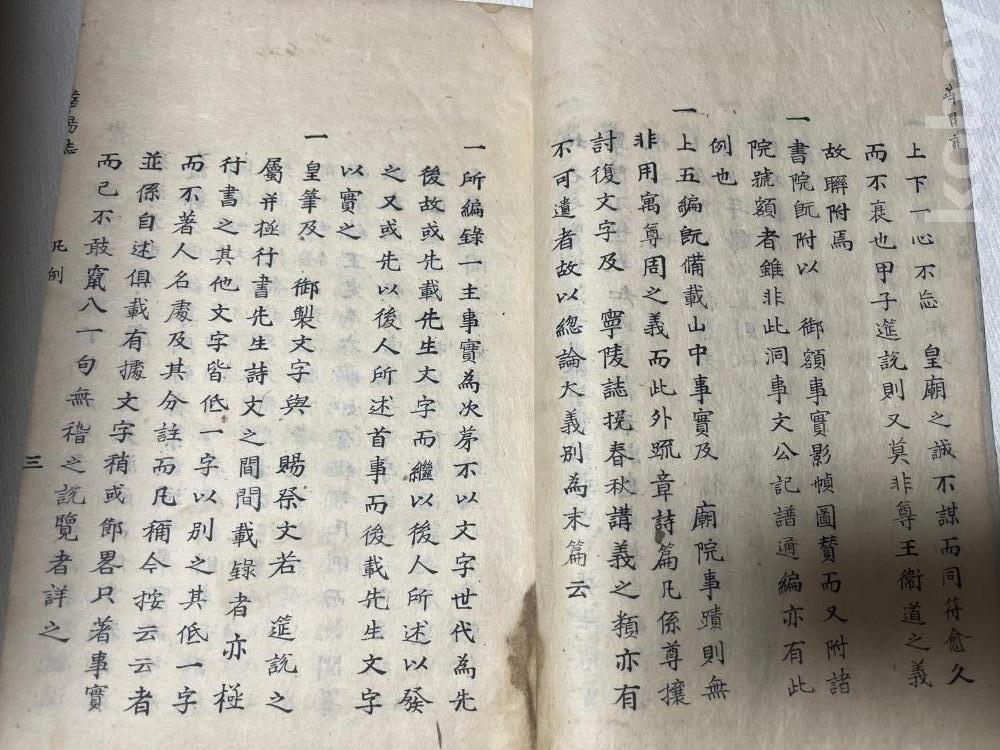 上下一心不忘 皇廟之誠不謀而同待愈久
而不衰也甲子筵說則又莫非尊王衞道之義
故聨附焉
一書院旣附以 御額事實影幀圖贊而又附諸
院號額者雖非此洞事文公記譜通編亦有此
例也
一上五編旣備載山中事實及 廟院事蹟則無
非用寓尊周之義而此外䟽章詩篇凡係尊攘
討復文字及 寧陵誌挽春秋講義之類亦有
不可遺者故以總論大義別為末篇云
一所編錄一主事實為次苐不以文字世代為先
後故或先載先生文字而繼以後人所述以發
之又或先以後人所述首事而後載先生文字
以實之
一 皇筆及 御製文字與 賜祭文若 筵說之
屬并極行書先生詩文之間間載錄者亦極
行書之其他文字皆低一字以別之其低一字
而不著人名處及其分註而凡稱今按云云者
並係自述俱載有據文字稍或節畧只著事實
而已不敢竄入一句無稽之說覽者詳之
華陽志 凡例 三